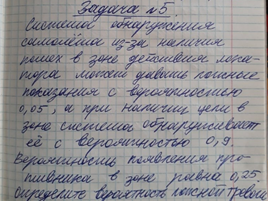 Задача №5.
Система обнаружения
самолёта из-за наличия
помех в зоне действия лока-
тора может давать ложные
показания с вероятностью
0,05, а при наличии цели в
зоне система обнаруживает
её с вероятностью 0,9.
Вероятность появления про-
тивника в зоне равна 0,25.
Определите вероятность ложной тревоги